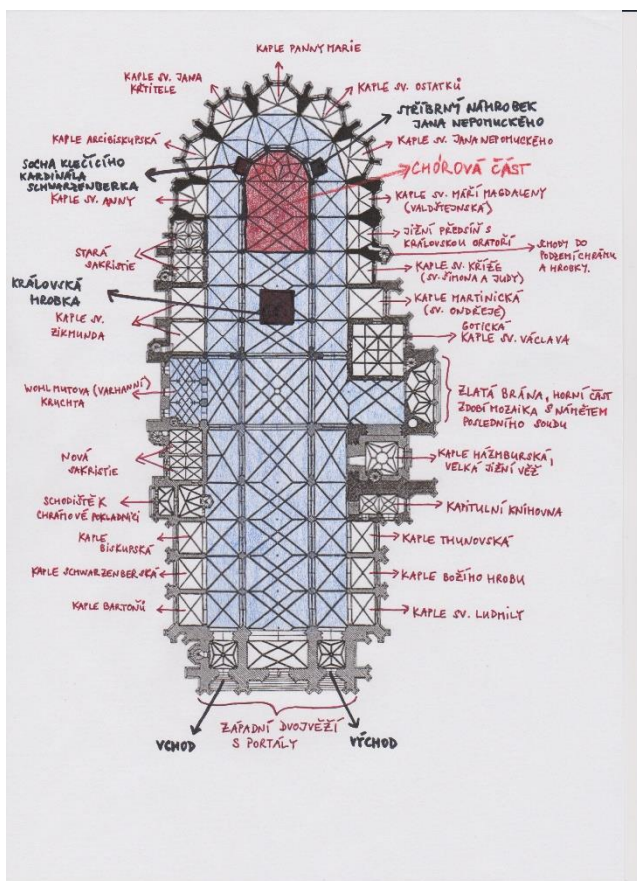 KAPLE PANNY MARIE
KAPLE SV. JANA
KŘTITELE
KAPLE SV. OSTATKŮ
STŘÍBRNÝ NÁHROBEK
JANA NEPOMUCKÉHO
KAPLE ARCIBISKUPSKÁ
KAPLE SV. JANA NEPOMUCKÉHO
SOCHA KLEČÍCÍHO
KARDINÁLA
SCHWARZENBERKA
CHÓROVÁ ČÁST
KAPLE SV. ANNY
KAPLE SV. MÁŘÍ MAGDALENY
(VALDŠTEJNSKÁ)
STARÁ
SAKRISTIE
JIŽNÍ PŘEDSÍŇ S
KRÁLOVSKOU ORATOŘÍ
SCHODY DO
PODZEMÍ CHRÁMU
A HROBKY.
KAPLE SV. KŘÍŽE
(SV. ŠIMONA A JUDY)
KRÁLOVSKÁ
HROBKA
KAPLE MARTINICKÁ
(SV. ONDŘEJE)
KAPLE SV.
ZIKMUNDA
GOTICKÁ
KAPLE SV. VÁCLAVA
WOHLMUTOVA (VARHANNÍ)
KRUCHTA
ZLATÁ BRÁNA, HORNÍ ČÁST
ZDOBÍ MOZAIKA S NÁMĚTEM
POSLEDNÍHO SOUDU
NOVÁ
SAKRISTIE
KAPLE HÁZMBURSKÁ,
VELKÁ JIŽNÍ VĚŽ
SCHODIŠTĚ K
CHRÁMOVÉ POKLADNICI
KAPITULNÍ KNIHOVNA
KAPLE
BISKUPSKÁ
KAPLE THUNOVSKÁ
KAPLE SCHWARZENBERSKÁ
KAPLE BOŽÍHO HROBU
KAPLE BARTOŇŮ
KAPLE SV. LUDMILY
ZÁPADNÍ DVOJVĚŽÍ
S PORTÁLY
VCHOD
VÝCHOD